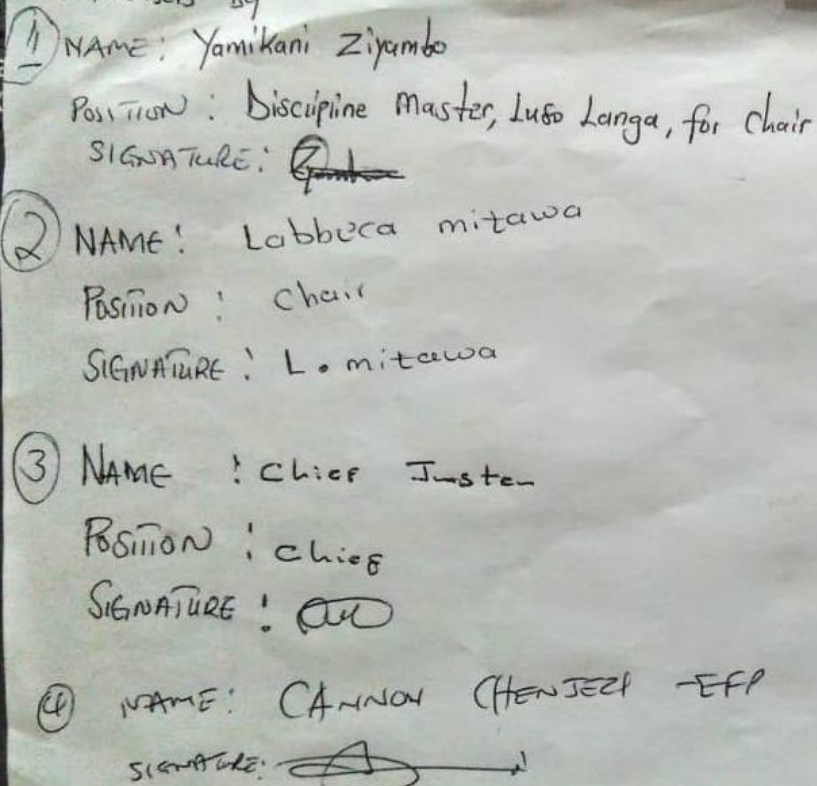 By
1 NAME: Yamikani Ziyambo
POSITION: Discipline Master, Luso Langa, for Chair
SIGNATURE:
2 NAME: Labbeca mitawa
POSITION: Chair
SIGNATURE: L. mitawa
3 NAME: Chief Justen
POSITION: Chief
SIGNATURE:
4 NAME: CANNON CHENJEZI -EFP
SIGNATURE: